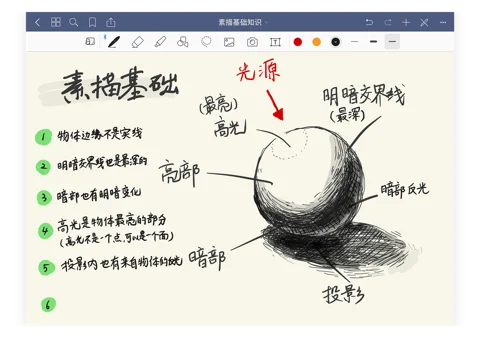 素描基础知识
素描基础
光源
(最亮)
高光
明暗交界线
(最深)
亮部
暗部反光
暗部
投影
1 物体边缘不是实线
2 明暗交界线也是最深的
3 暗部也有明暗变化
4 高光是物体最亮的部分
(高光不是一个点,可以是一个面)
5 投影内也有来自物体的反光
6